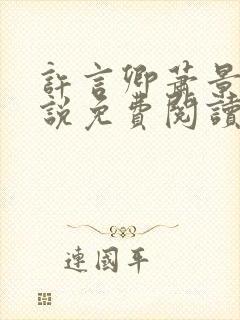 許言卿蕭景
說免費閱讀
連國平